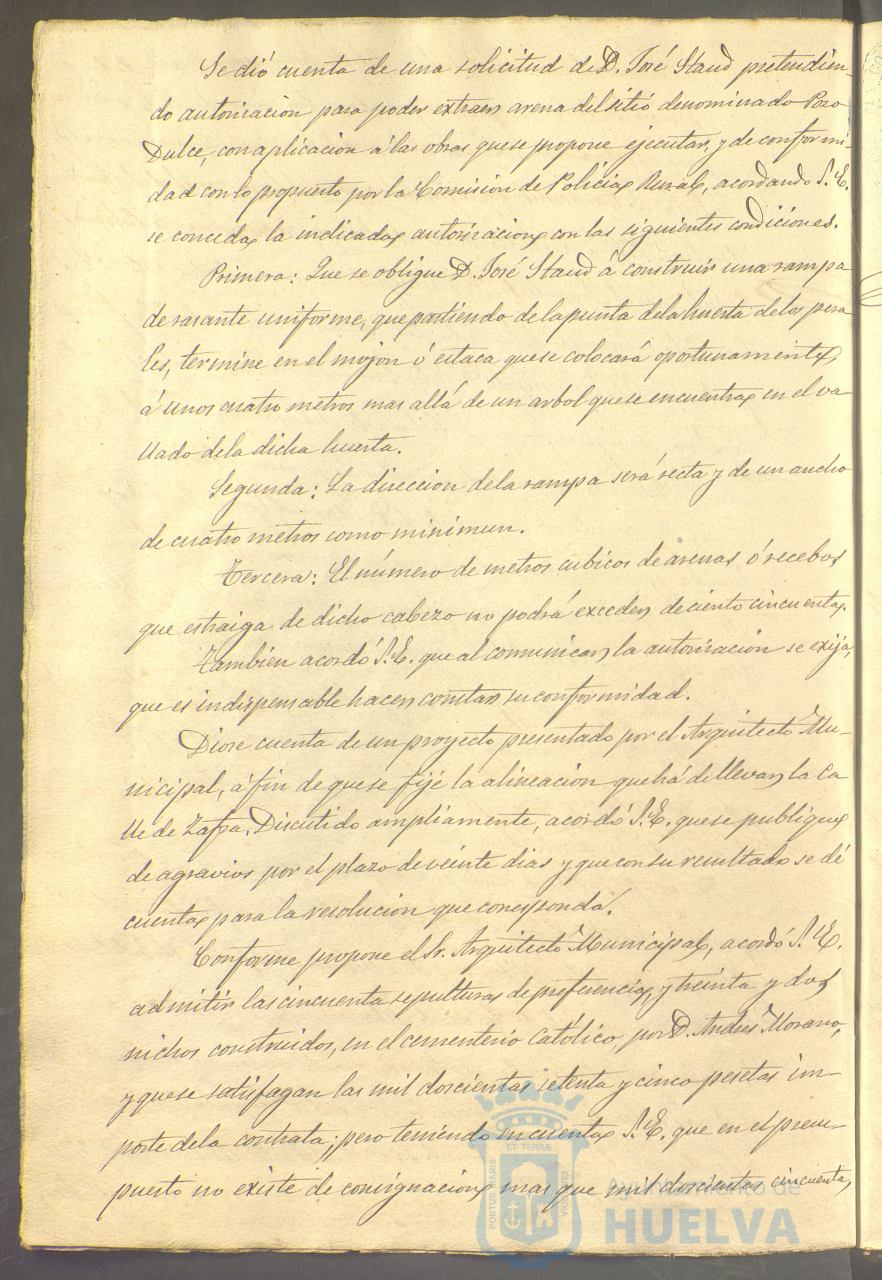 Se dió cuenta de una solicitud de D. José Staud pretendien-
do autorizacion para poder extraer arena del sitió denominado Pozo
Dulce, con aplicación á las obras que se propone ejecutar, y de conformi
dad con lo propuesto por la Comisión de Policia Rural, acordando S. E.
se conceda la indicada autorizacion con las siguientes condiciones.
Primera: Que se obligue D. José Staud á construir una rampa
de rasante uniforme, que partiendo de la punta de la huerta de los pera
les, termine en el mojon ó estaca que se colocará oportunamente,
á unos cuatro metros mas allá de un arbol que se encuentra en el va
llado de la dicha huerta.
Segunda: La direccion de la rampa será recta y de un ancho
de cuatro metros como minimun.
Tercera: El número de metros cubicos de arenas ó recebos
que estraiga de dicho cabezo no podrá exceder de ciento cincuenta.
Tambien acordó S. E. que al comunicar la autorización se exija,
que es indispensable hacer constar su conformidad.
Diose cuenta de un proyecto presentado por el Arquitecto Mu-
nicipal, á fin de que se fije la alineación que há de llevar la Ca
lle de Zafra. Discutido ampliamente, acordó S. E. que se publique
de agravios por el plazo de veinte dias y que con su resultado se dé
cuenta para la resolucion que corresponda.
Conforme propone el Sr. Arquitecto Municipal, acordó S. E.
admitir las cincuenta sepulturas de preferencia, y treinta y dos
nichos construidos, en el cementerio Católico, por D. Andrés Morano,
y que se satisfagan las mil doscientas setenta y cinco pesetas im-
porte de la contrata; pero teniendo en cuenta S. E. que en el presu-
puesto no existe de consignacion mas que mil doscientas cincuenta,
PORTUS MARIS ET TERRÆ CUSTODIA
Ayuntamiento de
HUELVA